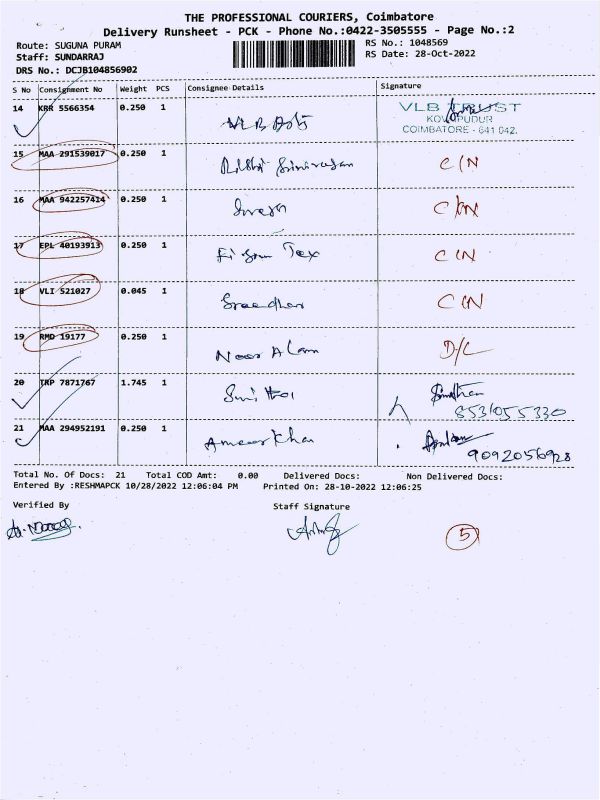 THE PROFESSIONAL COURIERS, Coimbatore
Delivery Runsheet - PCK - Phone No.:0422-3505555 - Page No.:2
Route: SUGUNA PURAM
RS No.: 1048569
Staff: SUNDARRAJ
RS Date: 28-Oct-2022
DRS No.: DCJB104856902
S No Consignment No Weight PCS Consignee Details Signature
14 KRR 5566354 0.250 1 VLB
VLB TRUST
KOVAIPUDUR
COIMBATORE - 641 042.
15 MAA 291539017 0.250 1 Srinivasan C/N
16 MAA 942257414 0.250 1 C/N
17 EPL 40193913 0.250 1 Tex C/N
18 VLI 521027 0.045 1 Sreedhar C/N
19 RMD 19177 0.250 1 Noor Alam D/L
20 TRP 7871767 1.745 1
8531055330
21 MAA 294952191 0.250 1 Ameerkhan
9092056928
Total No. Of Docs: 21 Total COD Amt: 0.00 Delivered Docs: Non Delivered Docs:
Entered By :RESHMAPCK 10/28/2022 12:06:04 PM Printed On: 28-10-2022 12:06:25
Verified By Staff Signature
5